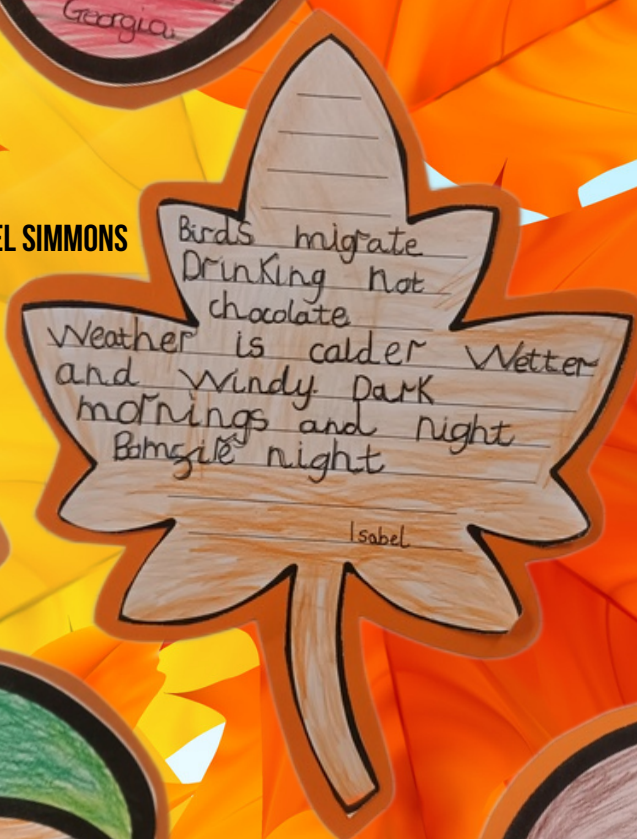 Georgia
EL SIMMONS
Birds migrate
Drinking hot
chocolate
Weather is calder Wetter
and Windy Dark
mornings and night
night
Isabel